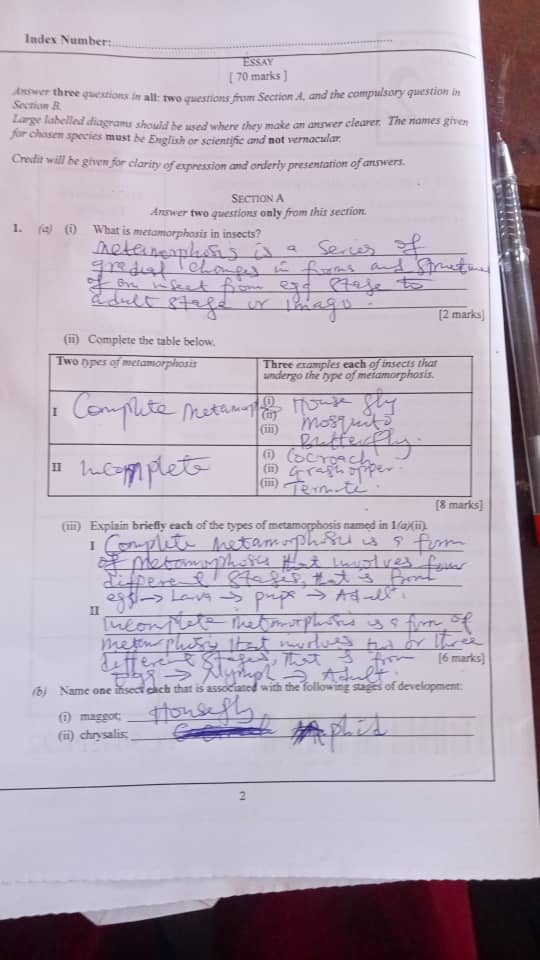 Index Number:
ESSAY
[ 70 marks ]
Answer three questions in all: two questions from Section A, and the compulsory question in
Section B.
Large labelled diagrams should be used where they make an answer clearer. The names given
for chosen species must be English or scientific and not vernacular.
Credit will be given for clarity of expression and orderly presentation of answers.
SECTION A
Answer two questions only from this section.
1. (a) (i) What is metamorphosis in insects?
metamorphosis is a series of
gradual changes in forms and structures
of an insect from egg stage to
adult stage or imago.
[2 marks]
(ii) Complete the table below.
Two types of metamorphosis Three examples each of insects that
undergo the type of metamorphosis.
I Complete metamorph (i) House fly
(ii) mosquito
(iii) Butterfly.
II Incomplete (i) Cocroach
(ii) Grashopper.
(iii) Termite.
[8 marks]
(iii) Explain briefly each of the types of metamorphosis named in 1(a)(ii).
I Complete metamorphosis is a form
of metamorphosis that involves four
different stages, that is from
egg → Lava → pupa → Adult.
II Incomplete metamorphosis is a form of
metamorphosis that involves two or three
different stages, that is from [6 marks]
Egg → Nymph → Adult.
(b) Name one insect each that is associated with the following stages of development:
(i) maggot; Housefly
(ii) chrysalis; Aphid
2